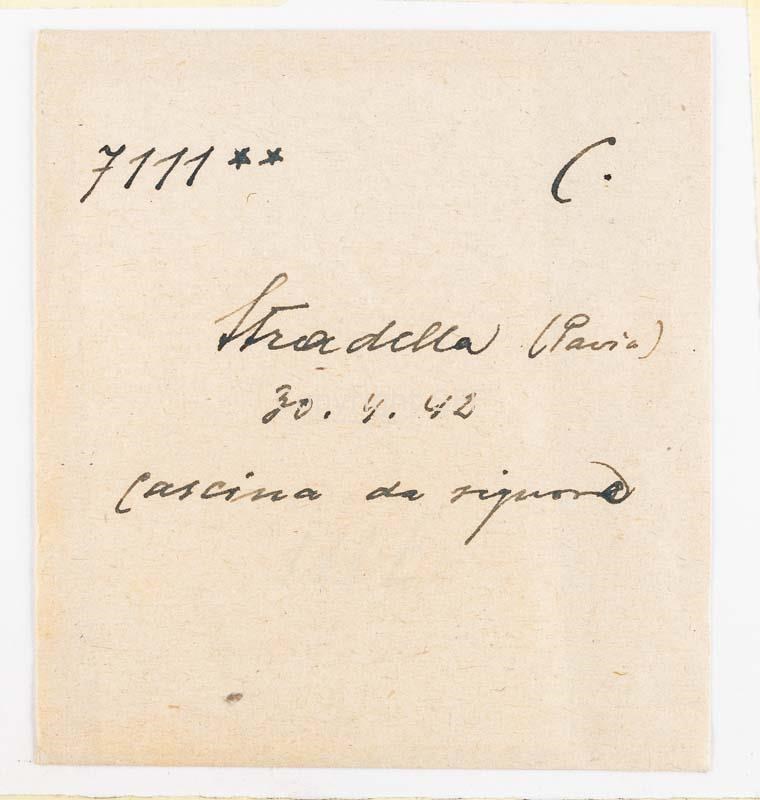 7111** C.
Stradella (Pavia)
30.4.42
Cascina da signora